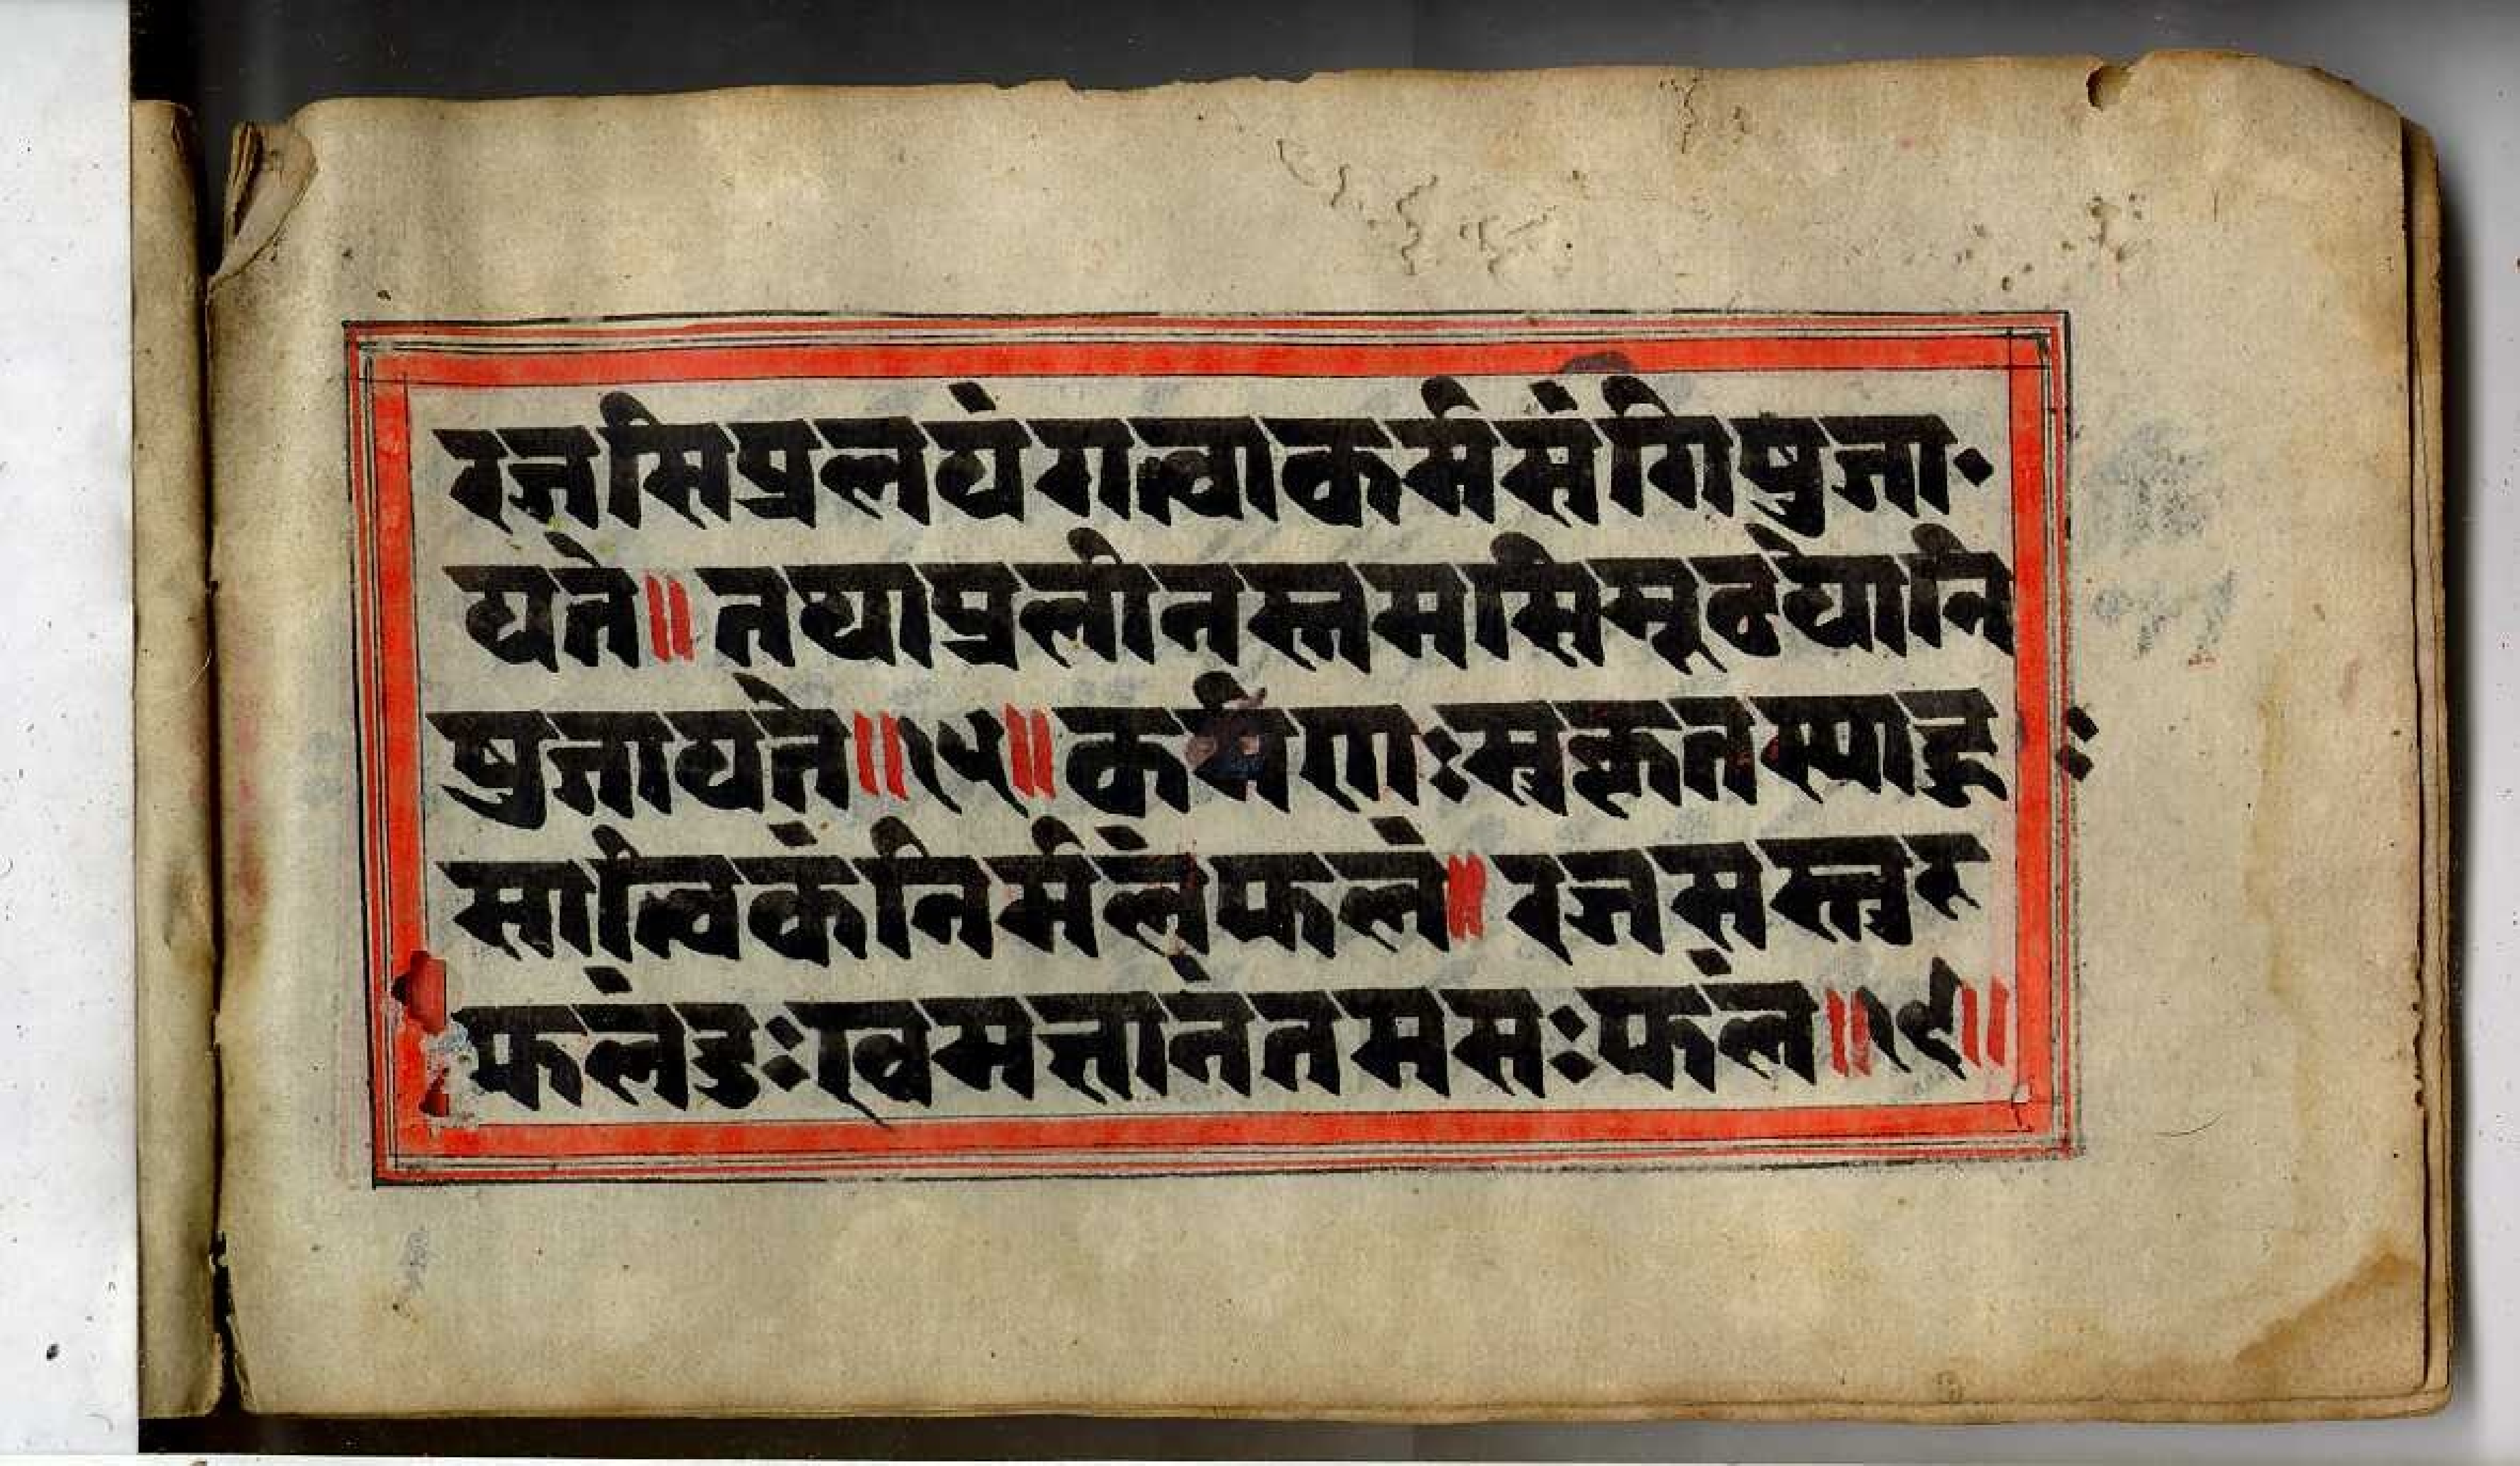 रजसिप्रलयंगत्वाकर्मसंगिषुजा॰
यते॥तथाप्रलीनस्तमसिमूढयोनि
षुजायते॥१५॥कर्मणः सुकृतस्याहुः
सात्विकंनिर्मलंफलं॥रजसस्तुरु
फलंदुःखमज्ञानंतमसःफलं॥१६॥